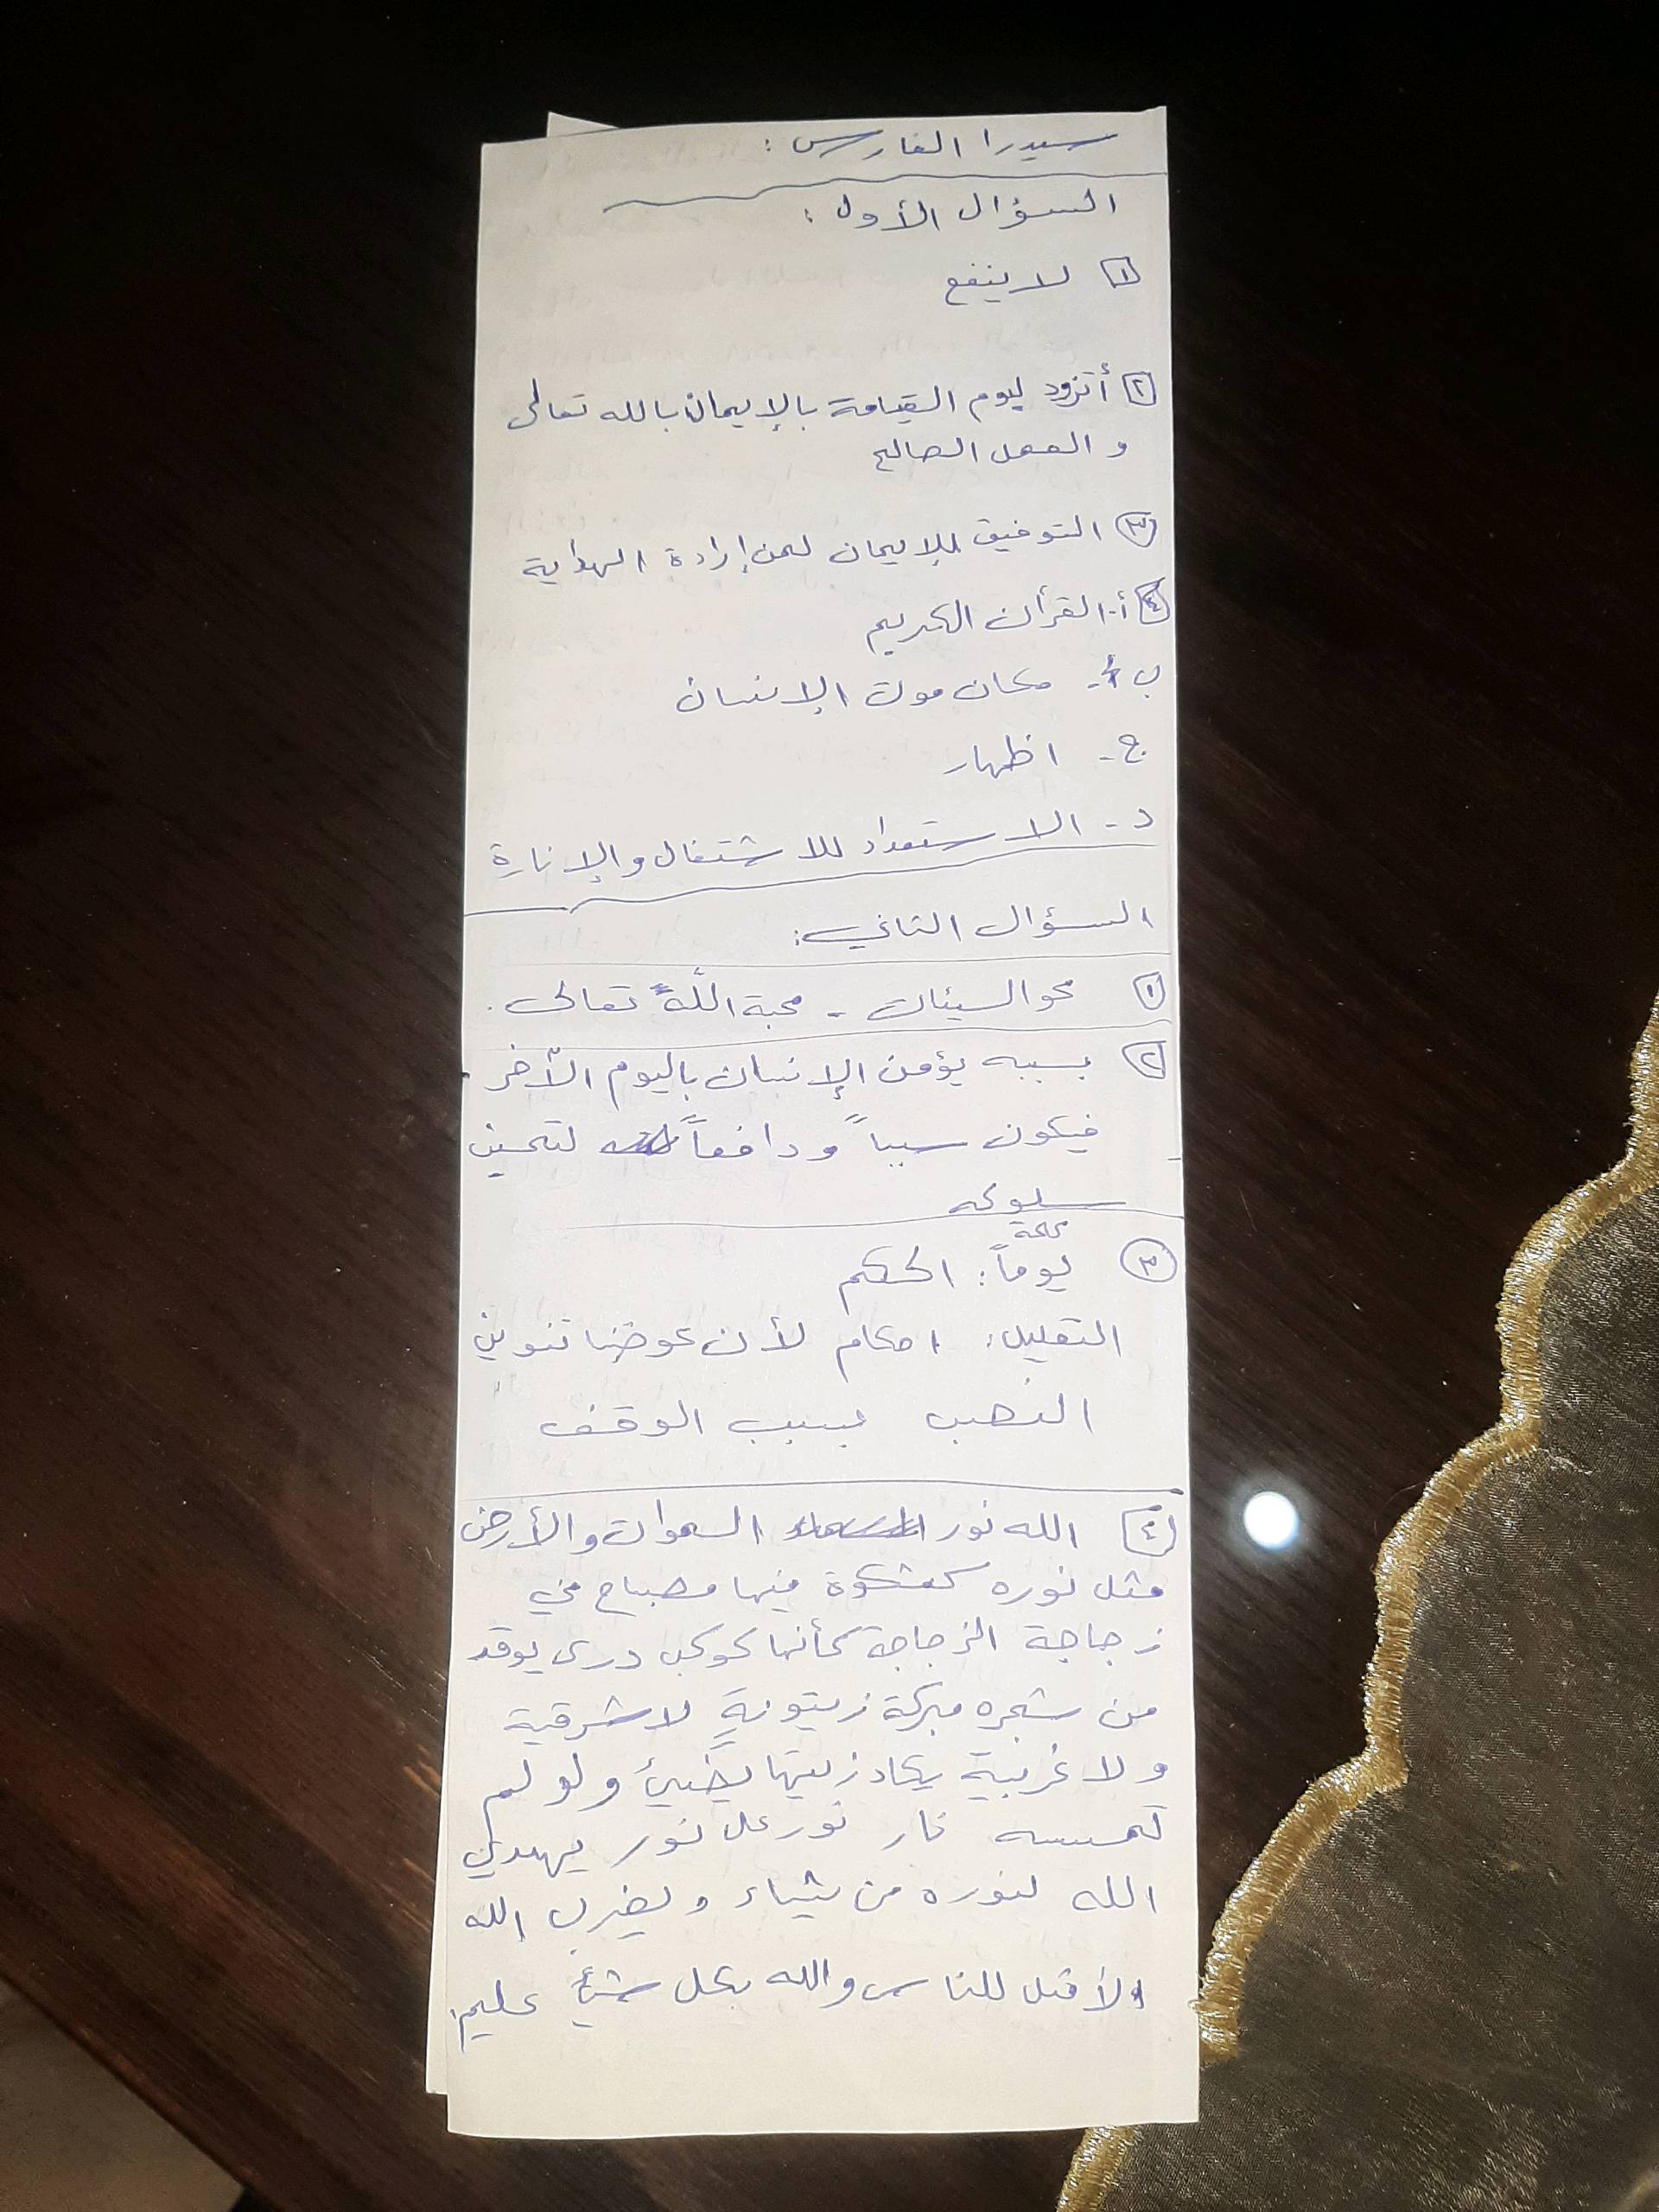 سيدرا الفارس :
السؤال الأول :
١ لا ينفع
٢ أتزود ليوم القيامة بالإيمان بالله تعالى
و العمل الصالح
٣ التوفيق للإيمان لمن إرادة الهداية
٤ أ- القرأن الكريم
ب - مكان موت الإنسان
ج - اظهار
د - الاستعداد للاشتعال والإنارة
السؤال الثاني :
١ محو السيئات - محبة اللّه تعالى .
٢ بسببه يؤمن الإنسان باليوم الآخر
فيكون سبباً ودافعاً لتحسين
سلوكه
كلمة
٣ يوماً : الحكم
التعليل : لأن عوضنا تنوين
النصب بسبب الوقف
٤ الله نور السموات والأرض
مثل نوره كمشكوة فيها مصباح في
زجاجة الزجاجة كأنها كوكب درى يوقد
من شجره مبركة زيتونةٍ لا شرقية
ولا غربية يكاد زيتها يضيئ ولو لم
تمسسه نار نور على نور يهدي
الله لنوره من يشاء ويضرب الله
الأمثل للناس والله بكل شيء عليم